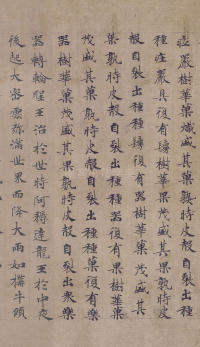 莊嚴樹華菓熾盛其菓熟時皮殼自裂出種
種莊嚴具復有鬘樹華菓茂盛其菓熟時皮
殼自裂出種種鬘復有器樹華菓茂盛其
菓熟時皮殼自裂出種種器復有果樹華菓
茂盛其果熟時皮殼自裂出種種菓復有樂
器樹華菓茂盛其果熟時皮殼自裂出眾樂
器轉輪聖王治於世時阿耨達龍王於中夜
後起大密雲彌滿世界而降大雨如搆牛頃